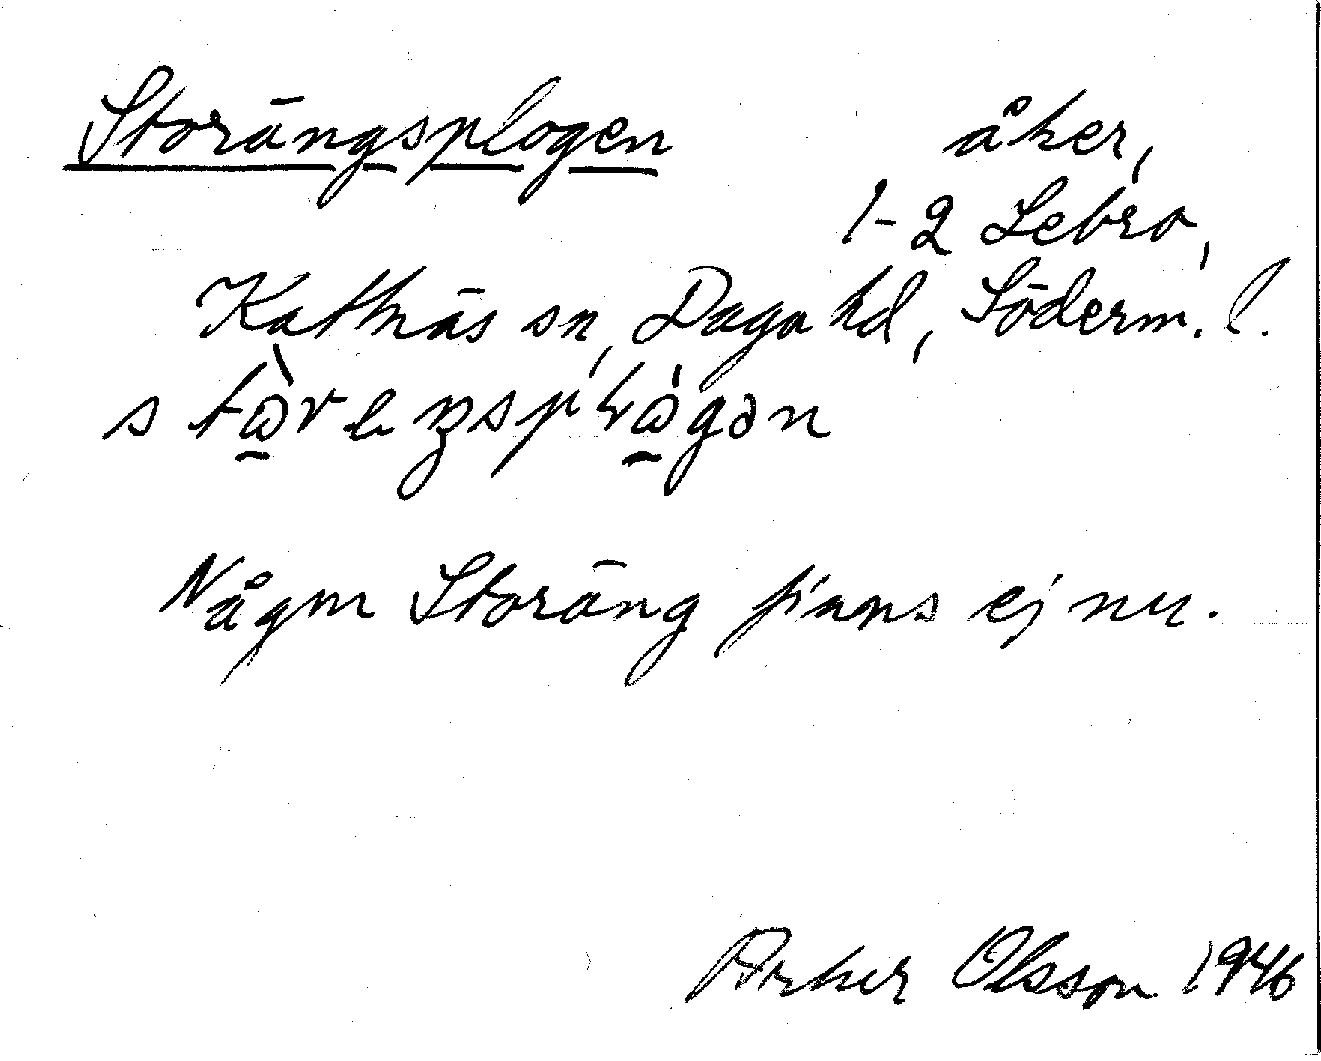 Storängsplogen åker,
1-2 Lebro,
Kattnäs sn, Daga hd, Söderm. l.
Någon Storäng finns ej nu.
Olsson 1946